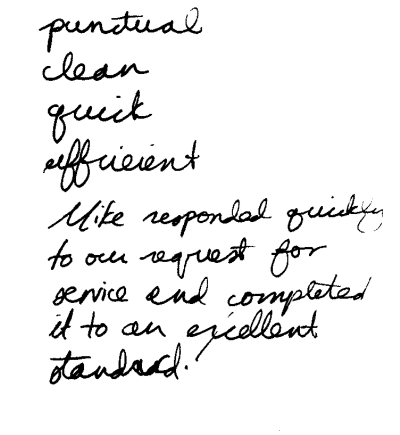 punctual
clean
quick
efficient
Mike responded quickly
to our request for
service and completed
it to an excellent
standard.